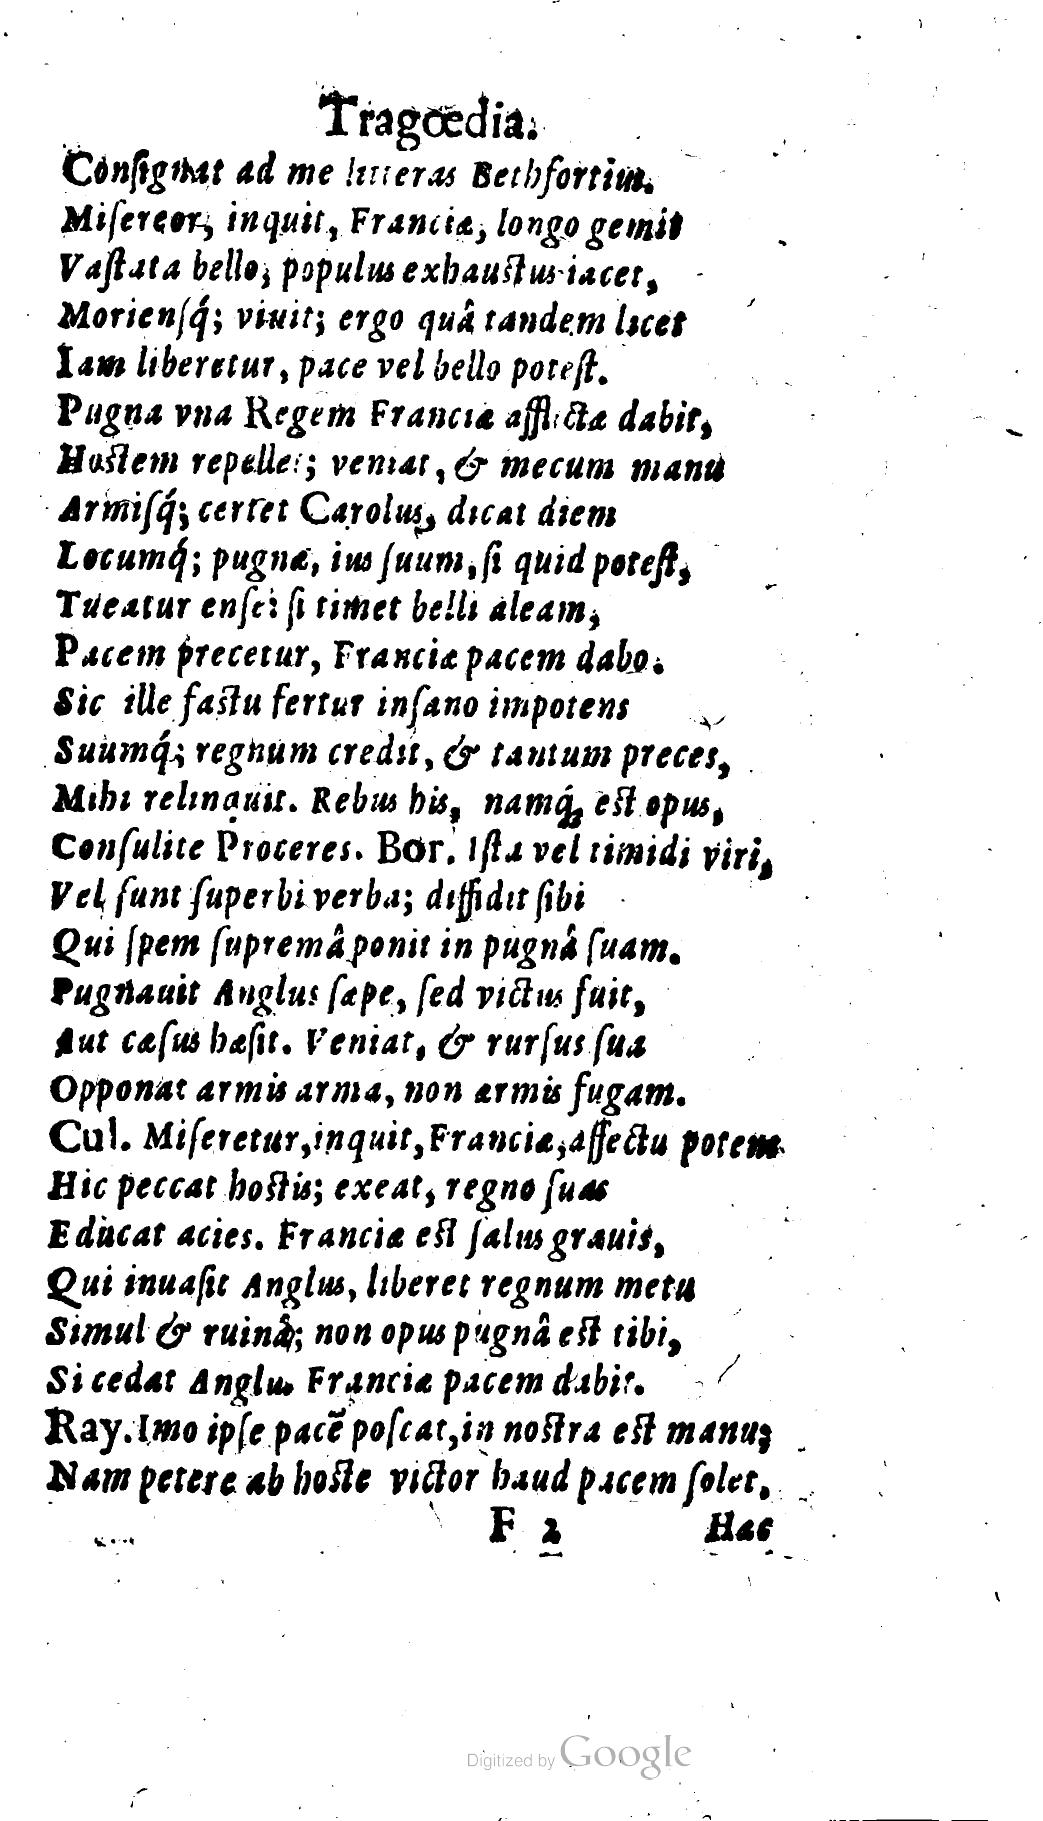 Tragœdia.
Conſignat ad me litteras Bethfortius.
Miſereor, inquit, Franciæ, longo gemit
Vaſtata bello, populus exhauſtus iacet,
Morienſq́; viuit; ergo quâ tandem licet
Iam liberetur, pace vel bello poteſt.
Pugna vna Regem Franciæ afflictæ dabit,
Hoſtem repellet; veniat, & mecum manu
Armiſq́; certet Carolus, dicat diem
Locumq́; pugnæ, ius ſuum, ſi quid poteſt,
Tueatur enſe: ſi timet belli aleam,
Pacem precetur, Franciæ pacem dabo.
Sic ille faſtu fertur inſano impotens
Suumq́; regnum credit, & tantum preces,
Mihi relinquit. Rebus his, namq́; eſt opus,
Conſulite Proceres. Bor. Iſta vel timidi viri,
Vel ſunt ſuperbi verba; diffidit ſibi
Qui ſpem ſupremâ ponit in pugnâ ſuam.
Pugnauit Anglus ſæpe, ſed victus fuit,
Aut cæſus hæſit. Veniat, & rurſus ſua
Opponat armis arma, non armis fugam.
Cul. Miſeretur, inquit, Franciæ, affectu potens
Hic peccat hoſtis; exeat, regno ſuas
Educat acies. Franciæ eſt ſalus grauis,
Qui inuaſit Anglus, liberet regnum metu
Simul & ruinâ; non opus pugnâ eſt tibi,
Si cedat Anglus Franciæ pacem dabit.
Ray. Imo ipſe pacẽ poſcat, in noſtra eſt manu;
Nam petere ab hoſte victor haud pacem ſolet,
F 2 Hac
Digitized by Google